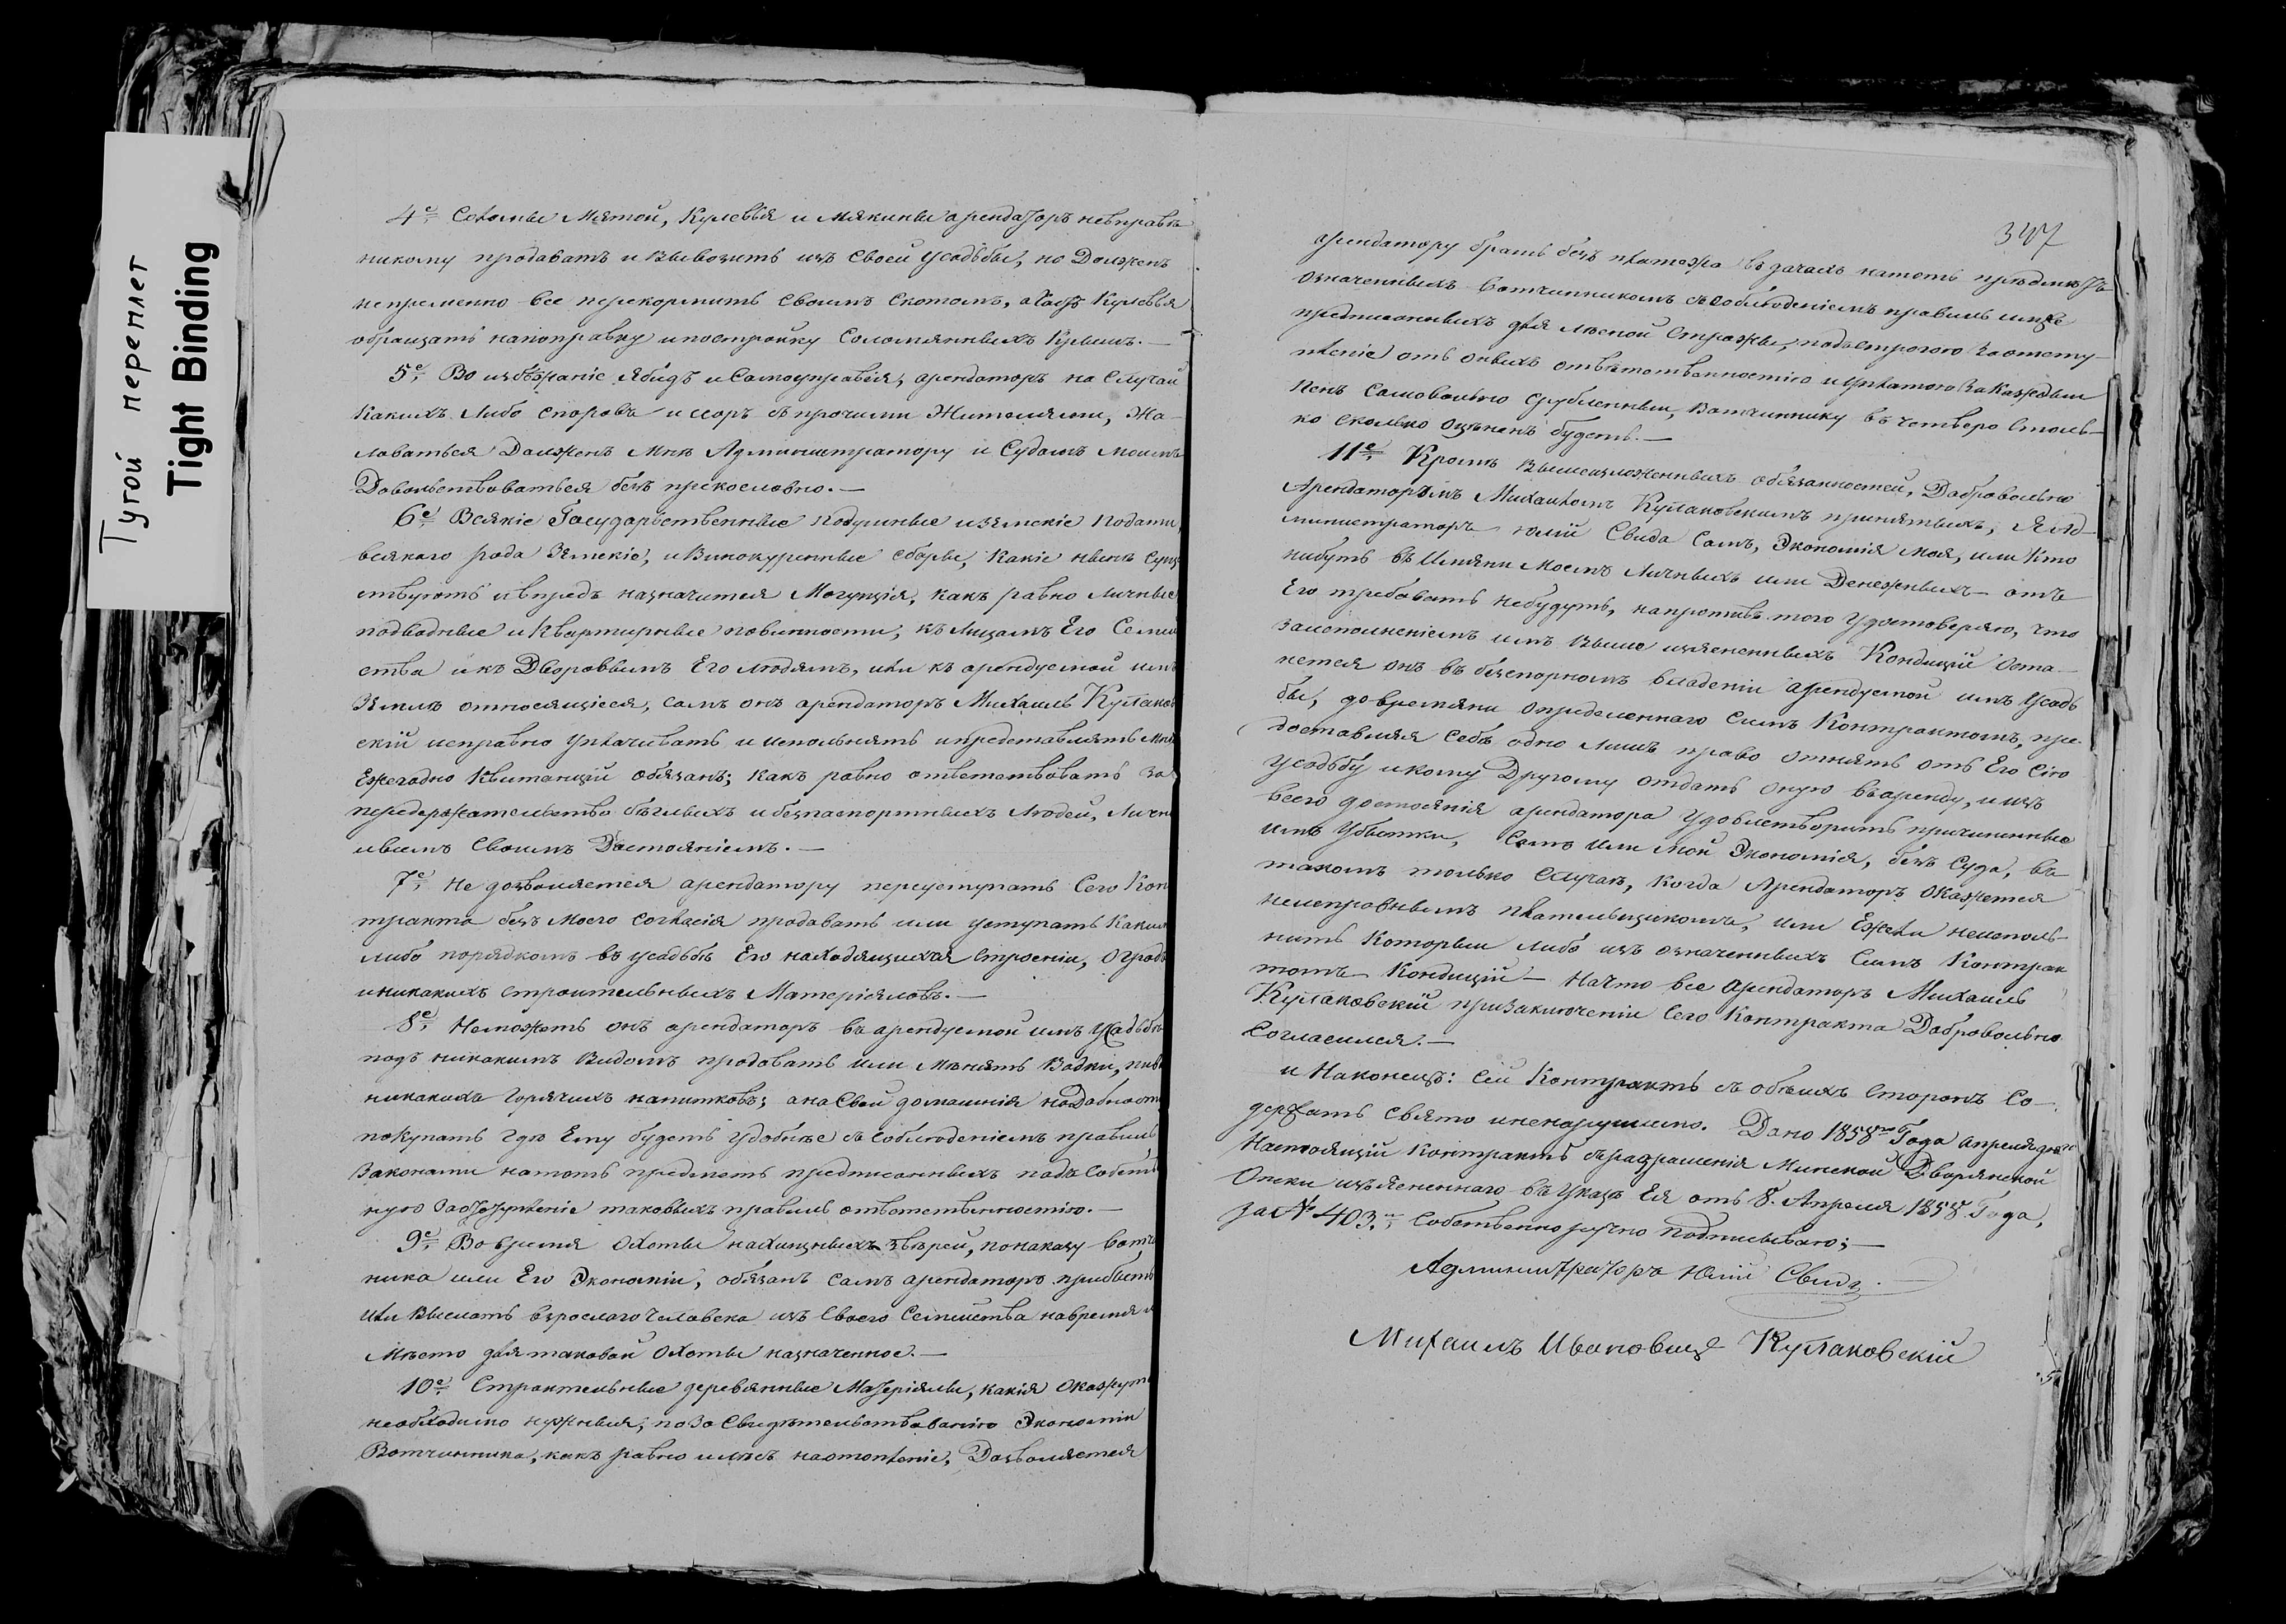 Тугой переплет
Tight Binding
4е, Соломы Мятой, Кулевья и мякины арендаторъ невправѣ
никому продавать и вывозить изъ своей усадьбы, но Долженъ
непременно все перекормить своимъ скотомъ, а Кулевья
обращать напоправку ипостройку Соломянныхъ Крышъ.—
5е, Во избѣжаніе Ябидъ и Самоуправія, арендаторъ на Случай
Какихъ Либо споровъ и ссоръ съ прочими Жителями, Жа-
ловаться Долженъ Мнѣ Администратору и Судомъ моимъ
Довольствоваться безъ прекословно.—
6е, Всякіе Государственные Подушные изѣмскіе Подати,
всякаго рода Зѣмскіе, и Винокуренные сборы, Какіе нынѣ Сущ
ствуютъ ивпредь назначится Могущія, какъ равно личные
подводные и Квартирные повинности, къ Лицамъ Его Семей
ства икъ Дворовымъ Его людямъ, или къ арендуемой имъ
Зѣмлѣ относящіеся, самъ онъ арендаторъ Михаилъ Кулаков
скій исправно уплачивать и исполнять ипредставлять Мнѣ
Ежегодно Квитанціи обязанъ; какъ равно ответствовать за
передержательство бѣглыхъ и безпаспортныхъ Людей, Личн
ивсемъ Своимъ Достояніемъ.—
7е, Не дозволяется арендатору переуступать Сего Кон
тракта безъ Моего согласія продавать или уступать Какимъ
либо порядкомъ въ усадьбѣ Его находящихся Строеніи, Оград
иникакихъ строительныхъ Матеріяловъ.—
8е, Неможетъ онъ арендаторъ въ арендуемой имъ Усадьбѣ
подъ никакимъ Видомъ продовать или Мѣнять Водки, пив
никакихъ Горячихъ напитковъ; ана Свои домашнія Надобност
покупать гдѣ Ему будетъ Удобнѣе съ Соблюденіемъ правилъ
Законами натотъ предметъ предписанныхъ подъ Собств
ную таковыхъ правилъ ответственностію.—
9е, Во время Охоты нахищныхъ звѣрей, понаказу Вотчи
ника или Его Экономіи, обязанъ самъ арендаторъ прибыть
Или Выслать взрослаго Человека изъ Своего Семейства навремя и
Мѣсто для таковой Охоты назначенное.—
10е, Строительные деревянные Матеріялы, какія Окажутс
необходимо нужныя, по За Свидѣтельствованію Экономіи
Вотчинника, какъ равно илѣсъ наотопленіе, Дозволяется
347
арендатору брать безъ платежа въ дачахъ натотъ предметъ
означенныхъ Вотчинникомъ съсоблюденіемъ правилъ имже
предписанныхъ для лѣсной Стражи, подъстрогою Заотсту-
пленіе отъ оныхъ отвѣтственностію и Уплатою За Каждый
Пень Самовольно Срубленный, Вотчиннику въ четверо Столь-
ко сколько оцѣненъ будетъ.—
11е, Кромѣ Вышеизложенныхъ обязанностей, Добровольно
Арендаторомъ Михаиломъ Кулаковскимъ принятыхъ, Я Ад-
министраторъ Юлій Свида Самъ, Экономія Моя, или Кто
нибуть въ Имѣніи Моемъ Личныхъ или Денежныхъ— отъ
Его требовать небудутъ, напротивъ того Удостоверяю, что
Заисполненіемъ имъ Выше изясненныхъ Кондицій Оста-
нется онъ въ безспорномъ владеніи арендуемой имъ Усадь
бы, довремяни определеннаго Симъ Контрактомъ, пре-
доставляя Себѣ одно лишь право отнять отъ Его Сію
усадьбу икому Другому отдать оную въаренду, иизъ
всего достоянія арендатора Удовлетворить причиненные
имъ Убытки, Самъ или мой Экономія, безъ Суда, въ
такомъ только Случаѣ, когда Арендаторъ Окажется
неисправнымъ плательщикомъ, или Ежели неисполь-
нитъ Которыи либо изъ означенныхъ Симъ Контрак
томъ— Кондицій— Начто все Арендаторъ Михаилъ
Кулаковскій призаключеніи Сего Контракта Добровольно
Согласился.—
и Наконецъ: Сей Контрактъ съ обѣихъ Сторонъ Со-
держать Свято иненарушимо. Дано 1858го Года Апреля дня
Настоящій Контрактъ съразрешенія Минской Дворянской
Опеки изъясненнаго въ Указѣ Ея отъ 8. Апреля 1858. Года,
за № 403, Собственноручно Подписываю;—
Администраторъ Юлій Свида.
Михаилъ Ивановичъ Кулаковскій